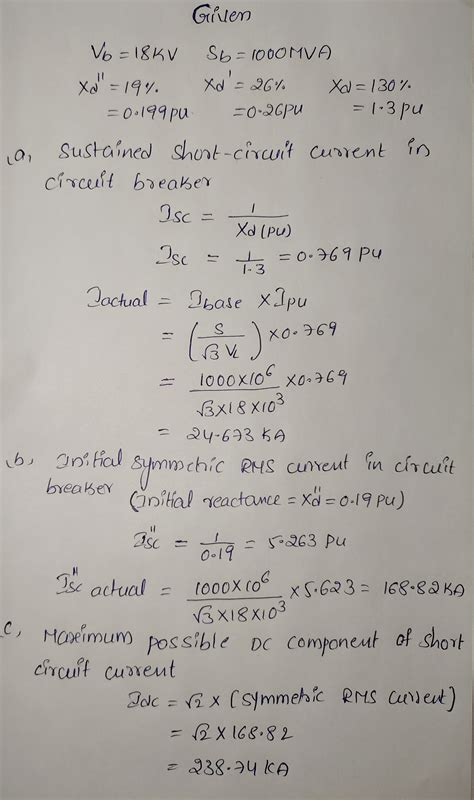 Given
Vb = 18KV Sb = 1000MVA
Xd" = 19% Xd' = 26% Xd = 130%
= 0.199pu = 0.26pu = 1.3pu
a, Sustained short-circuit current in
circuit breaker
Isc = 1/Xd(pu)
Isc = 1/1.3 = 0.769 pu
Iactual = Ibase × Ipu
= (S/√3 VL) × 0.769
= 1000×10⁶/√3×18×10³ × 0.769
= 24.673 KA
b, Initial symmetric RMS current in circuit
breaker (Initial reactance = Xd" = 0.19pu)
Isc" = 1/0.19 = 5.263 pu
Isc" actual = 1000×10⁶/√3×18×10³ × 5.623 = 168.82KA
c, Maximum possible DC component of short
circuit current
Idc = √2 × (symmetric RMS current)
= √2 × 168.82
= 238.74 KA